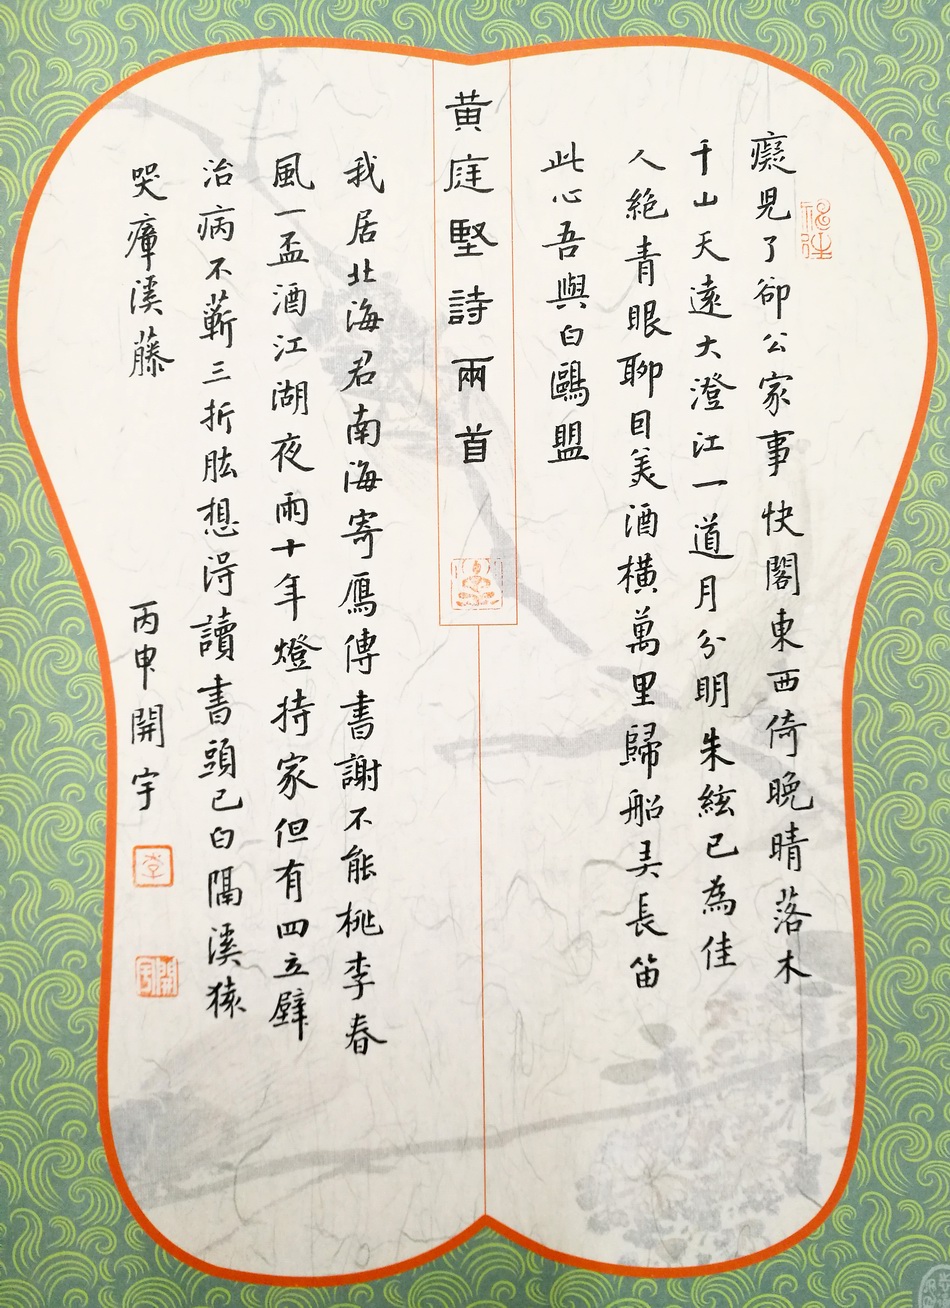 癡兒了卻公家事快閣東西倚晚晴落木
千山天遠大澄江一道月分明朱絃已為佳
人絕青眼聊因美酒橫萬里歸船弄長笛
此心吾與白鷗盟
黃庭堅詩兩首
我居北海君南海寄鴈傳書謝不能桃李春
風一盃酒江湖夜雨十年燈持家但有四立壁
治病不蘄三折肱想得讀書頭已白隔溪猿
哭瘴溪藤
丙申開宇
李
開宇